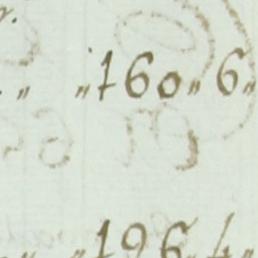 „ „160„6„
„ „196„4„